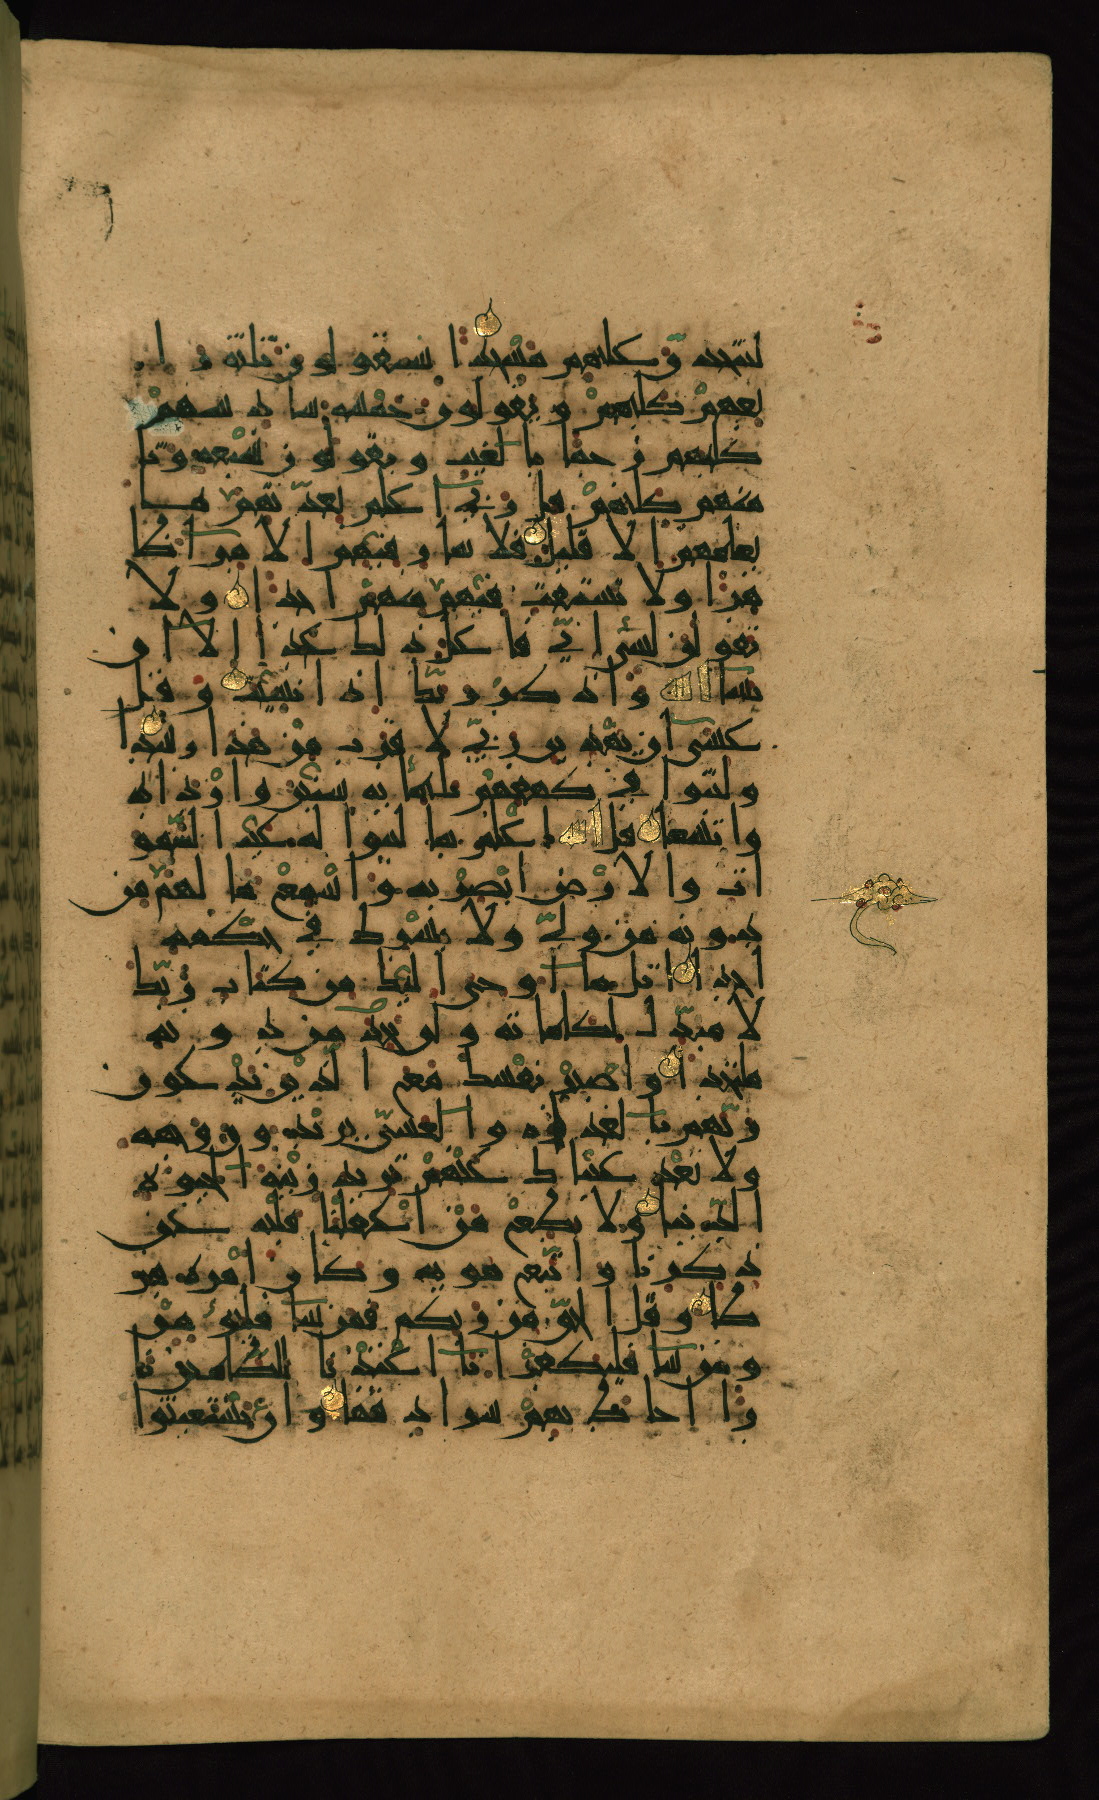 لنتخذن عليهم مسجدا سيقولون ثلثة را
بعهم كلبهم ويقولون خمسة سادسهم
كلبهم رجما بالغيب ويقولون سبعة وثا
منهم كلبهم قل ربي اعلم بعدتهم ما
يعلمهم الا قليل فلا تمار فيهم الا مرا ظا
هرا ولا تستفت فيهم منهم احدا ولا
تقولن لشي اني فاعل ذلك غدا الا ان
يشا الله واذكر ربك اذا نسيت وقل
عسى ان يهدين ربي لاقرب من هذا رشدا
ولبثوا في كهفهم ثلثمائة سنين وازدادوا
تسعا قل الله اعلم بما لبثوا له غيب السمو
ات والارض ابصر به واسمع ما لهم من
دونه من ولي ولا يشرك في حكمه
احدا واتل ما اوحي اليك من كتاب ربك
لا مبدل لكلماته ولن تجد من دونه
ملتحدا واصبر نفسك مع الذين يدعون
ربهم بالغدوة والعشي يريدون وجهه
ولا تعد عيناك عنهم تريد زينة الحيوة
الدنيا ولا تطع من اغفلنا قلبه عن
ذكرنا واتبع هويه وكان امره فر
طا وقل الحق من ربكم فمن شا فليؤمن
ومن شا فليكفر انا اعتدنا للظالمين نا
را احاط بهم سرادقها وان يستغيثوا